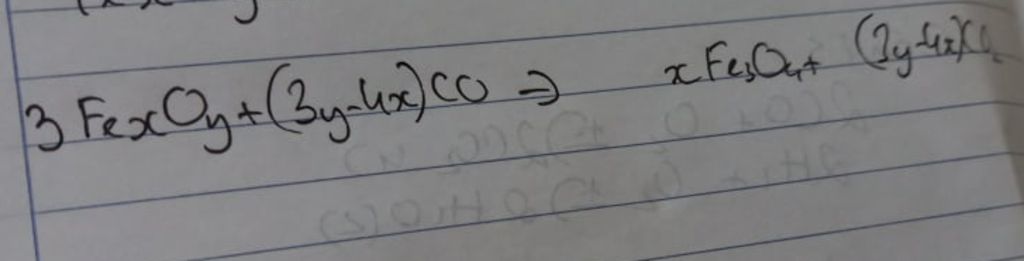 3 FexOy + (3y-4x)CO ⇒ xFe3O4 + (3y-4x)CO2